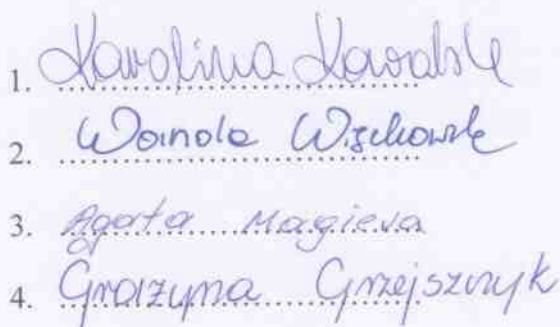 1. Karolina Kowalska
2. Wanda
3. Agata Magiera
4. Grażyna Grzejszczyk